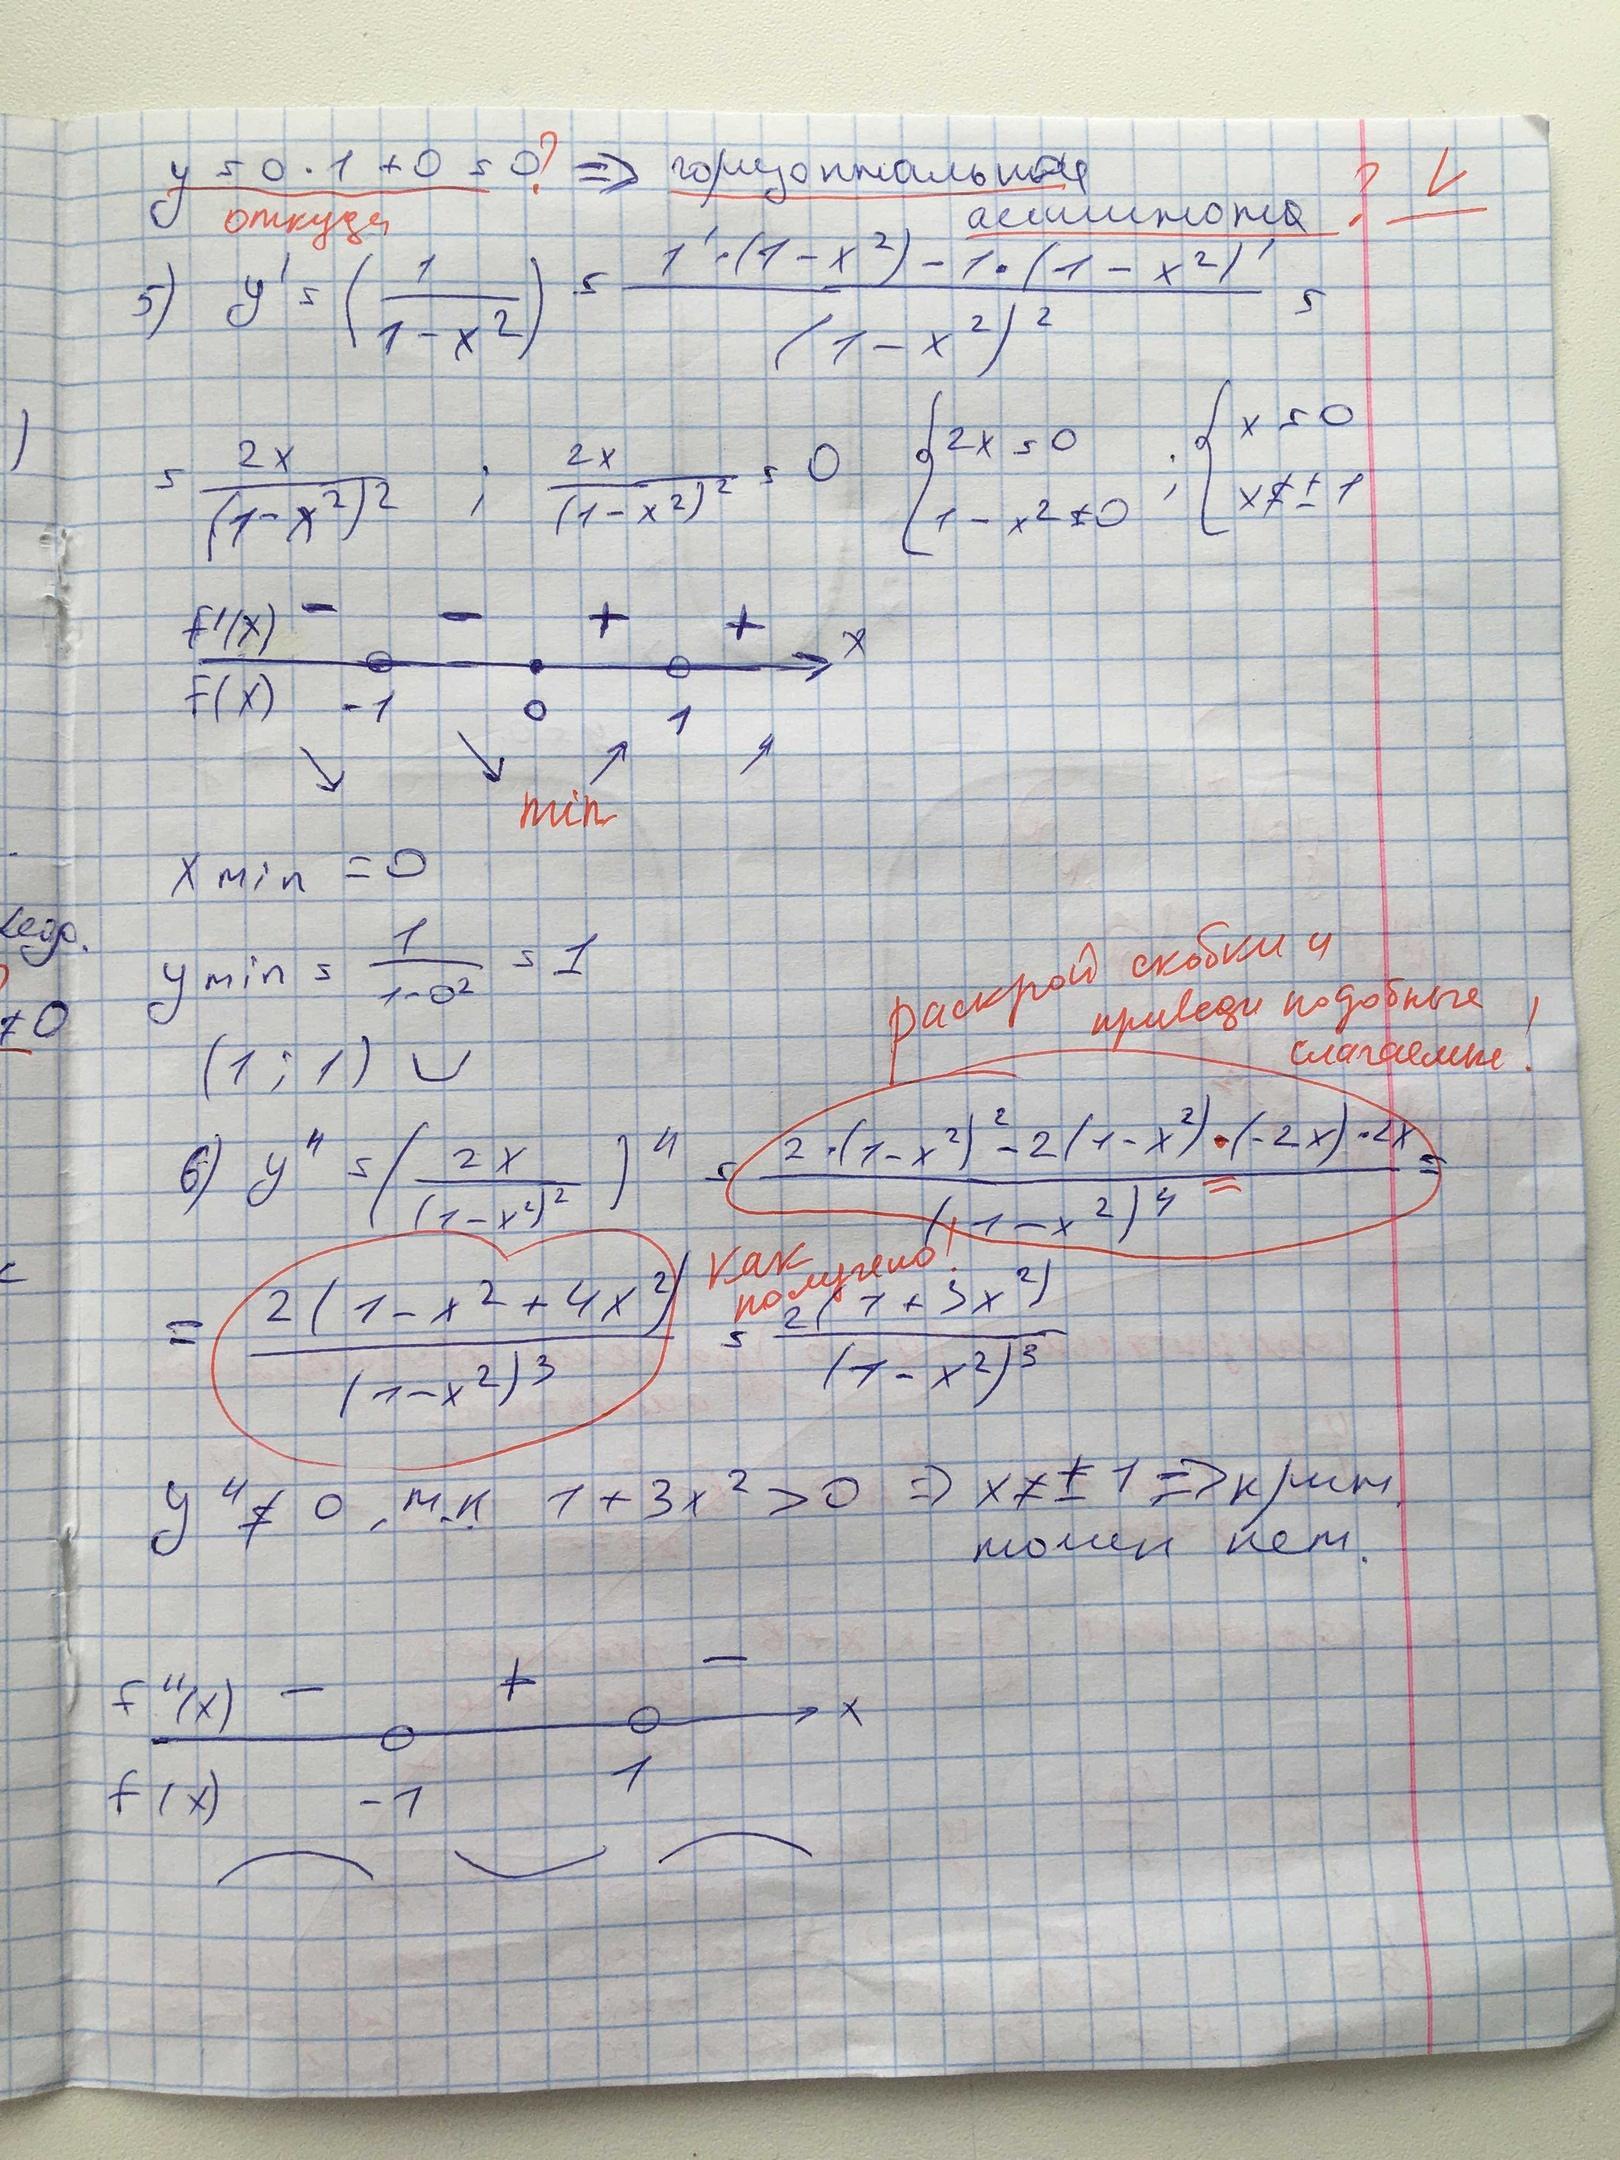 y = 0·1+0=0? => горизонтальная
откуда
асимптота ? V
5) y' = (1/(1-x²)) = (1'·(1-x²)-1·(1-x²)')/(1-x²)² =
= 2x/(1-x²)² ; 2x/(1-x²)² = 0 {2x=0 1-x²≠0 ; {x=0 x≠±1
f'(x) - - + + x
f(x) -1 0 1
↘ ↘ ↗ ↗
min
x min = 0
y min = 1/(1-0²) = 1
(1;1) ∪
раскрой скобки и
приведи подобные
слагаемые!
6) y" = (2x/(1-x²)²)" = (2·(1-x²)²-2(1-x²)·(-2x)·2x)/(1-x²)⁴ =
= 2(1-x²+4x²)/(1-x²)³ = 2(1+3x²)/(1-x²)³
как
получено!
y" ≠ 0, т.к 1+3x²>0 => x≠±1 => крит.
точек нет.
f"(x) - + - x
f(x) -1 1
≠0